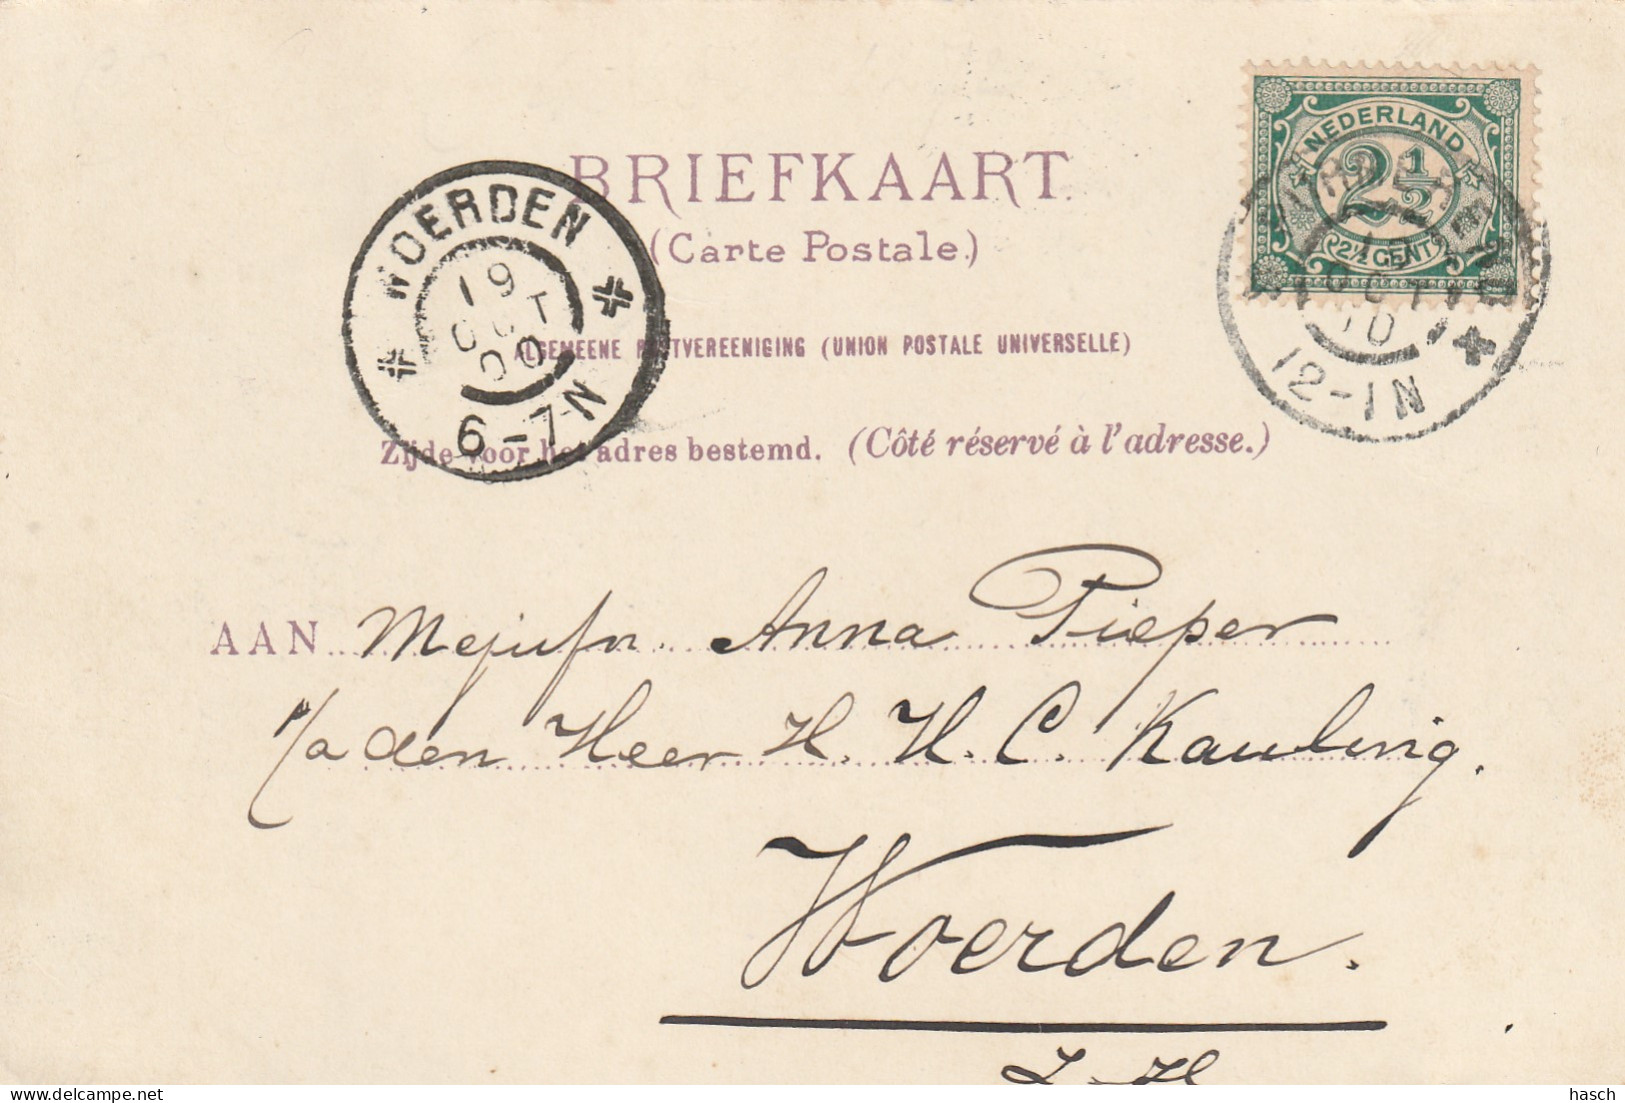 BRIEFKAART.
(Carte Postale.)
ALGEMEENE POSTVEREENIGING (UNION POSTALE UNIVERSELLE)
Zijde voor het adres bestemd. (Côté réservé à l'adresse.)
WOERDEN
19
OCT
00
6-7N
NEDERLAND
2½
2½ CENT
19
OCT
12-1N
AAN Mejufr. Anna Pieper
p/a den Heer H. H. C. Kauling.
Woerden.
Z-H
hasch